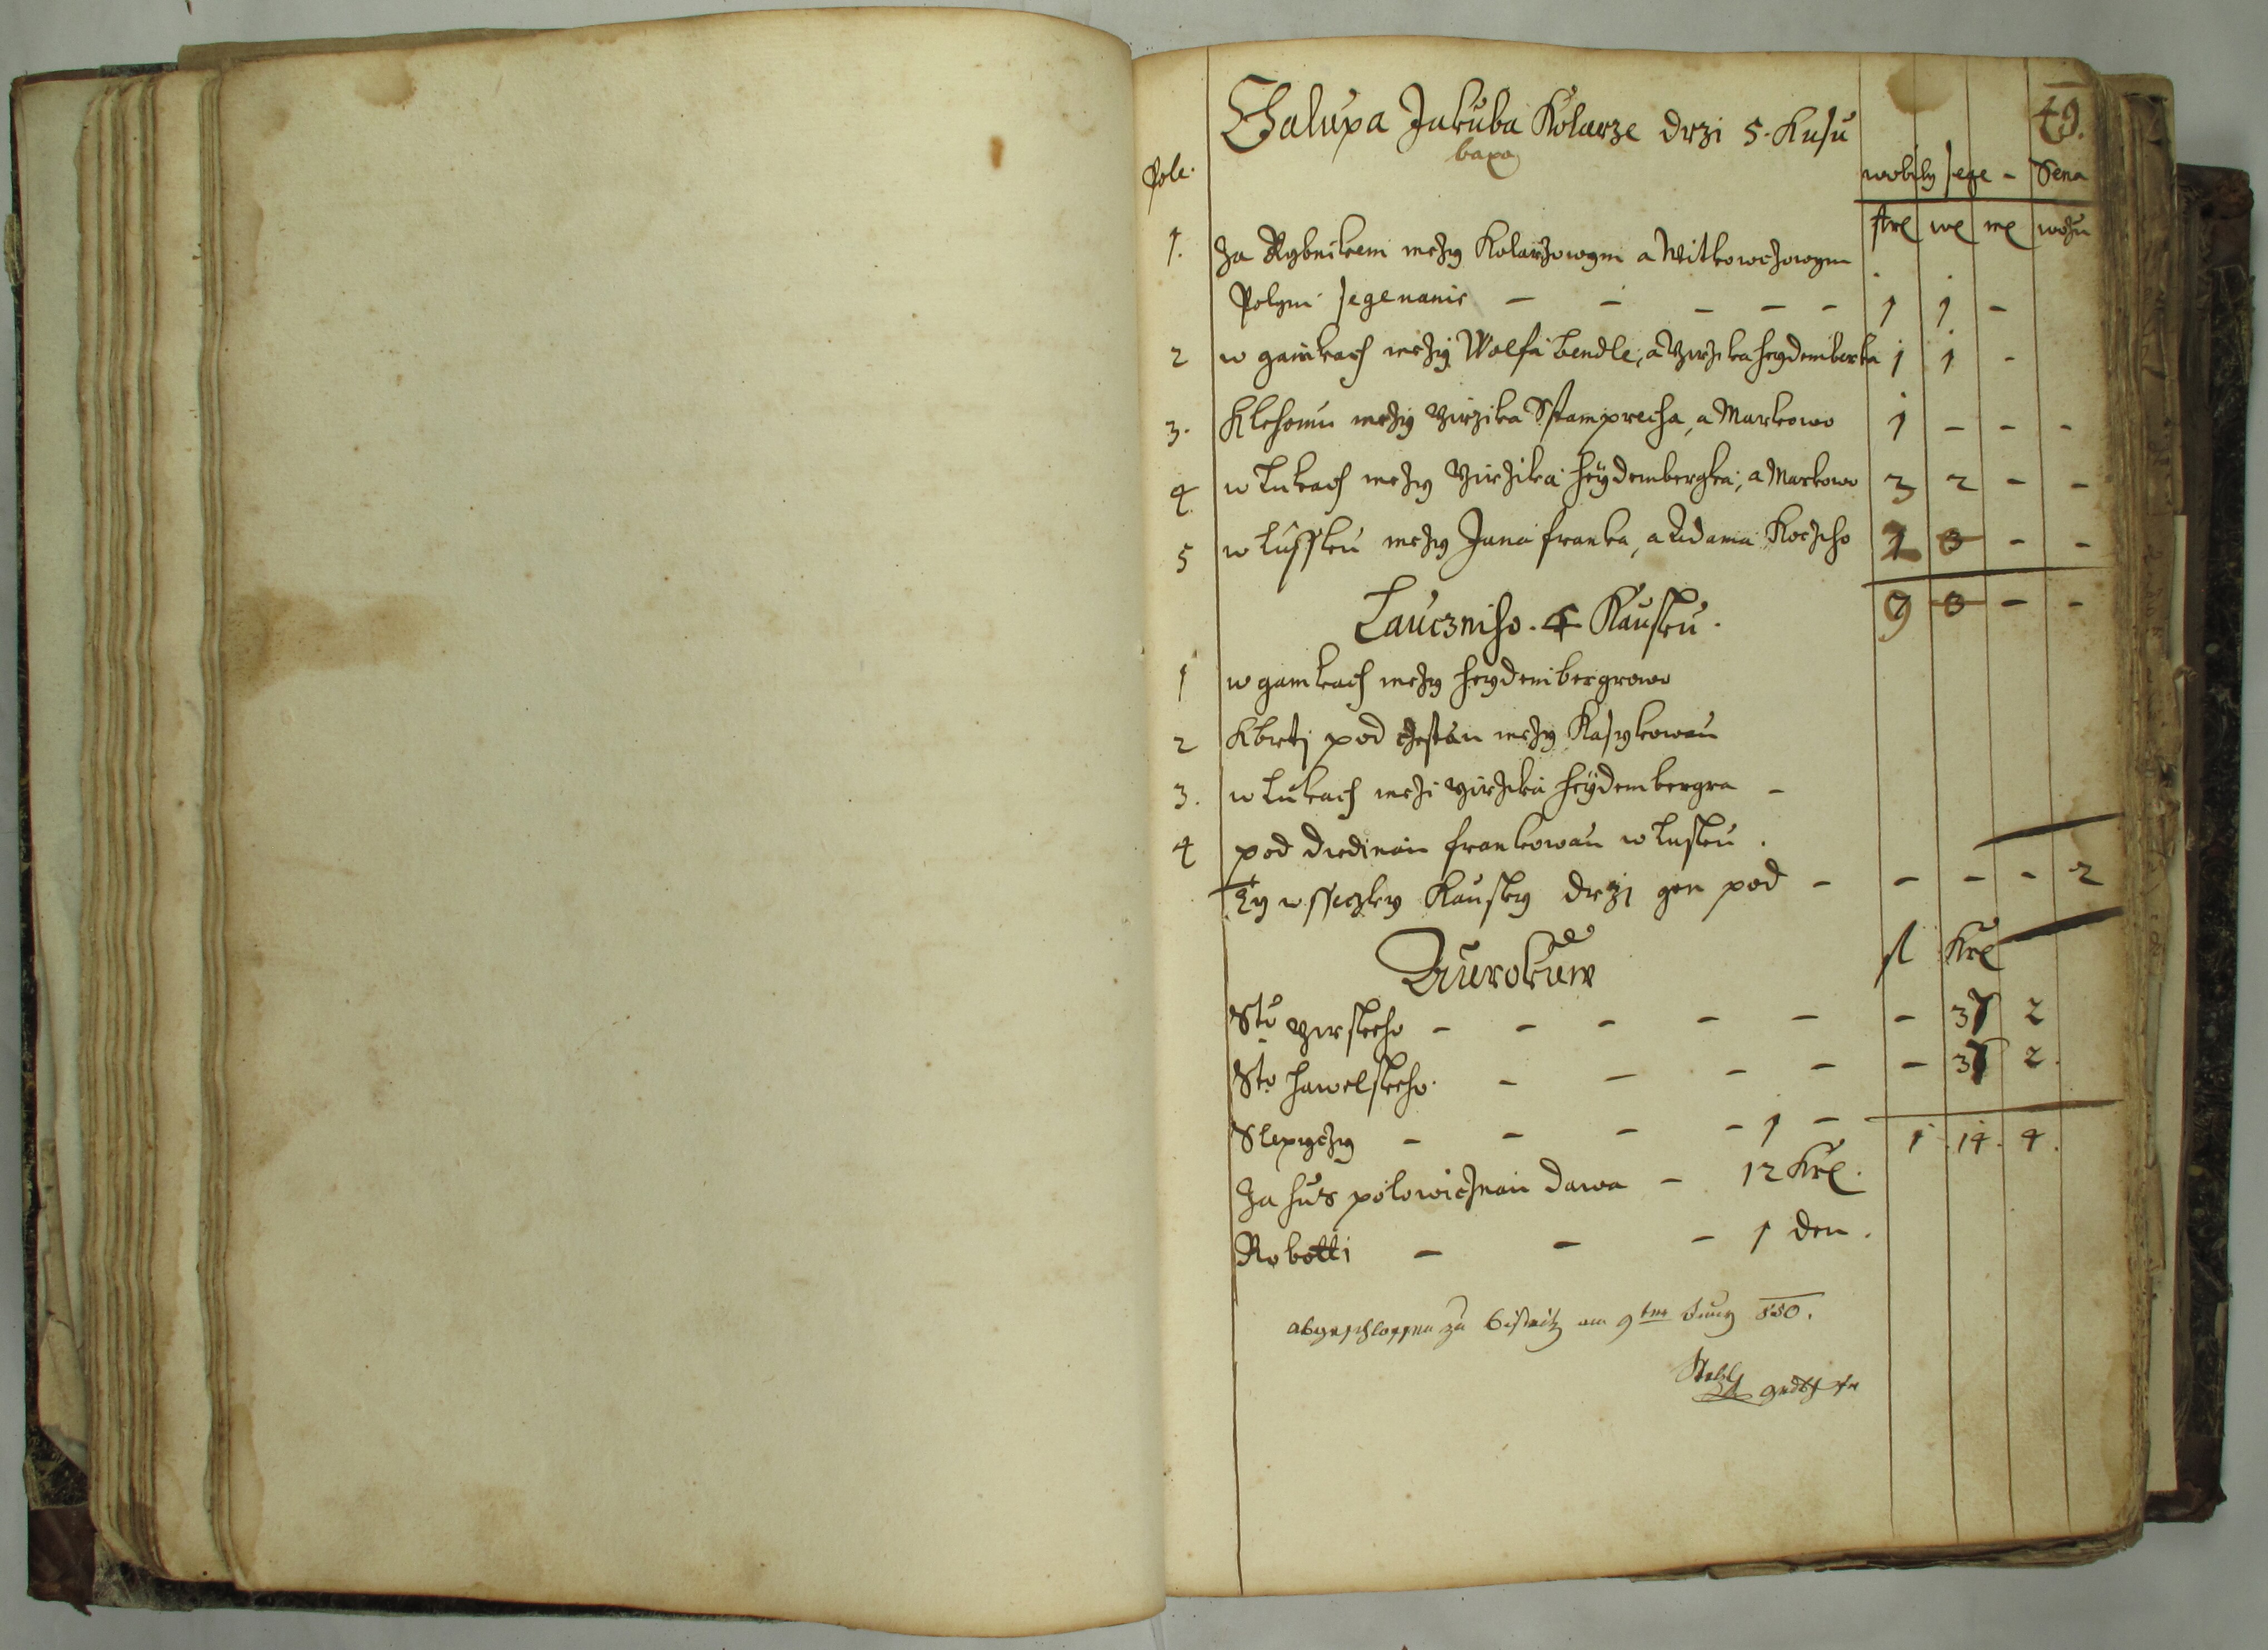 49.
Chalupa Jakuba Kolarze drzi 5. Kusu
Pole.
wobily sege - Sena
strę wę mę wozu
1. Za Rybnikem mezy Kolarzowym a Witkowczowym
Polym segenanis - - - - - 1 1 -
2 w gamkach mezy Wolfa bendle, a Yirzika heydemberka 1 1 -
3. Klehomu mezy Yirzika Sstamprecha, a Markowo 1 - - -
4 w Lukach mezy Yirzika heydembergka, a Markowo 3 2 - -
5 w Lussku mezy Jana franka, a Adama Koczho 2 0 - -
9 0 - -
Lauczniho. 4 Kausku.
1 w gamkach mezy heydembergrowo
2 Kbrti pod czestau mezy Kasykowau
3. w Lukach mezi Yirzika heydembergra -
4 pod diedinau frankowau w Lusku.
Ty wssiczky Kausky drzi gen pod - - - - 2
Aurokuw
fl Krę
Sto Yirskeho - - - - - - 37 2
Sto hawelskeho. - - - - - 37 2.
Slepyczy - - - - 1 - 1. 14. 4.
Za hus polowicznau dawa - 12 Krę.
Robotti - - - 1 den.
abgeschlossen zu Bistritz am 9ten Juny 850.